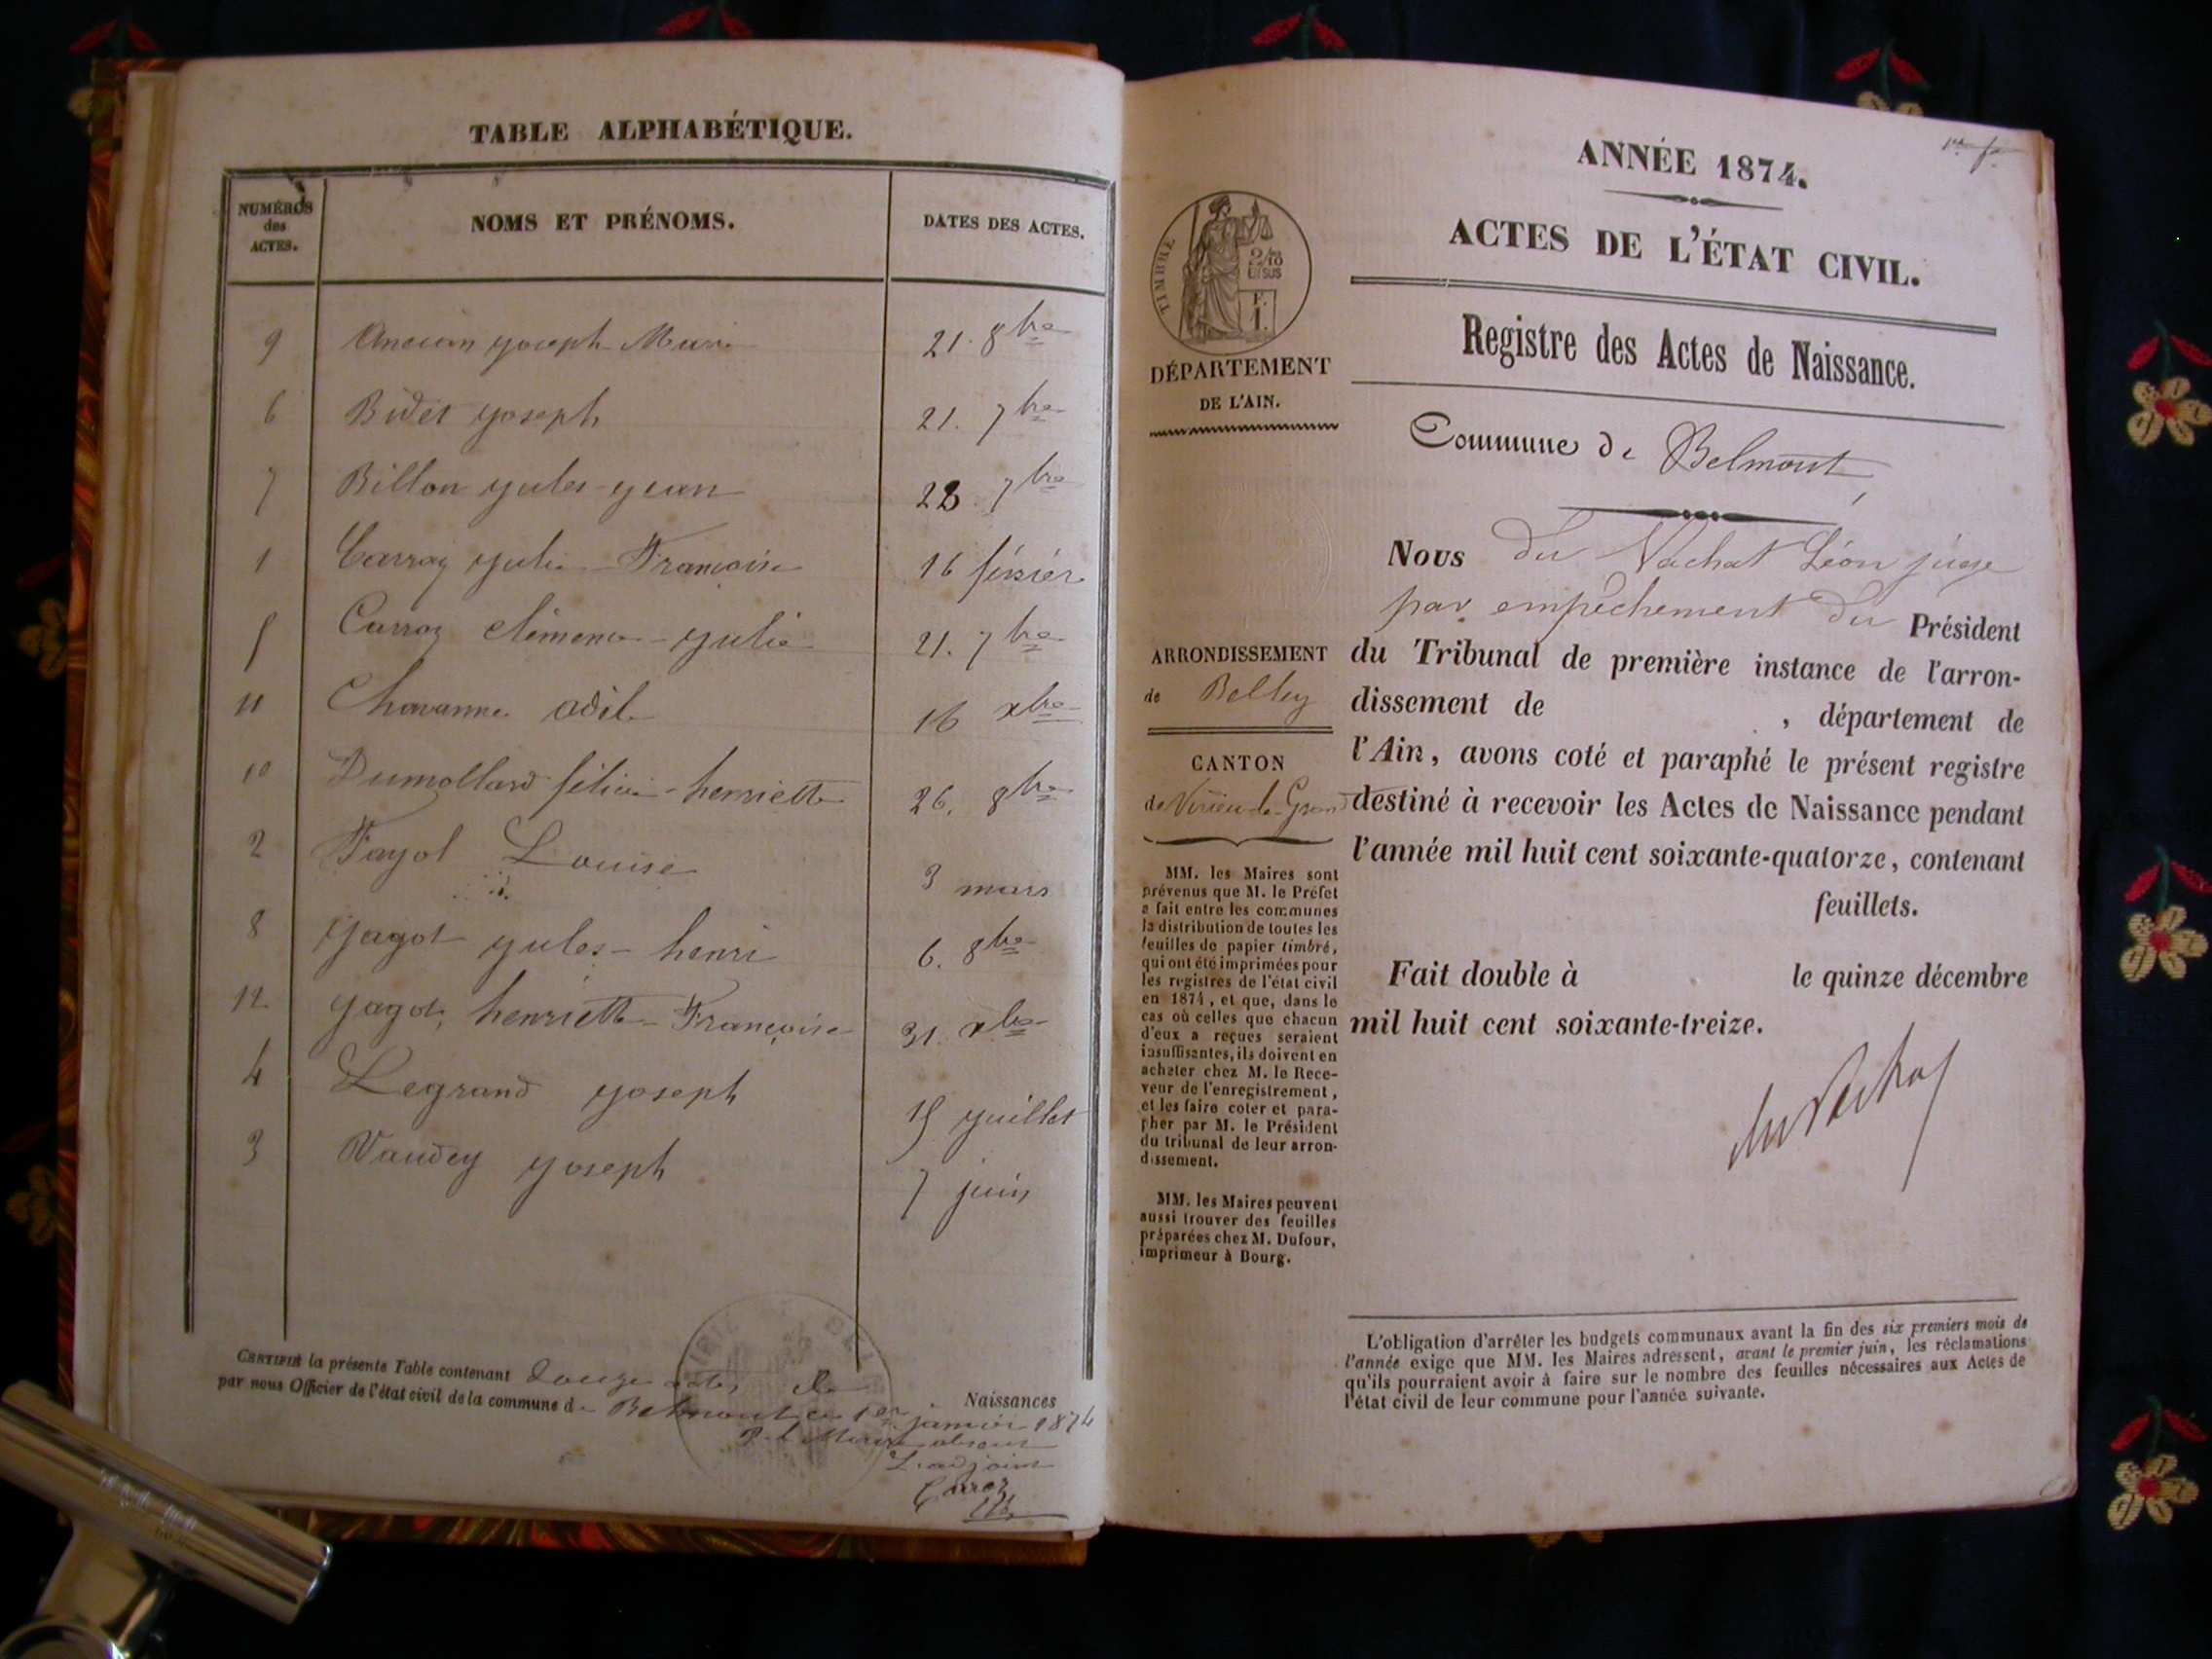 TABLE ALPHABÉTIQUE.
NUMÉROS
des
ACTES.
NOMS ET PRÉNOMS.
DATES DES ACTES.
9 Ancian Joseph Marie 21. 8bre
6 Bidet Joseph 21. 7bre
7 Billon Jules-Jean 28 7bre
1 Carroz Julie Françoise 16 février
5 Carroz Clémence-Julie 21. 7bre
11 Chavanne Odile 16 xbre
10 Dumollard félicie-henriette 26. 8bre
2 Fayol Louise 3 mars
8 Jagot Jules-henri 6. 8bre
12. Jagot, henriette-Françoise 31. xbre
4 Legrand Joseph 15 Juillet
3 Vaudey Joseph 7 juin
CERTIFIÉ la présente Table contenant douze actes de Naissances
par nous Officier de l'état civil de la commune de Belmont ce 1er janvier 1874
P. le Maire absent
L'adjoint
Carroz
1re f.
ANNÉE 1874.
ACTES DE L'ÉTAT CIVIL.
Registre des Actes de Naissance.
TIMBRE
2/10
EN SUS
F.
1.
DÉPARTEMENT
DE L'AIN.
Commune de Belmont
Nous du Vachat Léon juge
par empêchement du Président
du Tribunal de première instance de l'arron-
dissement de , département de
l'Ain, avons coté et paraphé le présent registre
destiné à recevoir les Actes de Naissance pendant
l'année mil huit cent soixante-quatorze, contenant
feuillets.
Fait double à le quinze décembre
mil huit cent soixante-treize.
du Vachat
ARRONDISSEMENT
de Belley
CANTON
de Virieu-le-Grand
MM. les Maires sont
prévenus que M. le Préfet
a fait entre les communes
la distribution de toutes les
feuilles de papier timbré,
qui ont été imprimées pour
les registres de l'état civil
en 1874, et que, dans le
cas où celles que chacun
d'eux a reçues seraient
insuffisantes, ils doivent en
acheter chez M. le Rece-
veur de l'enregistrement,
et les faire coter et para-
pher par M. le Président
du tribunal de leur arron-
dissement.
MM. les Maires peuvent
aussi trouver des feuilles
préparées chez M. Dufour,
imprimeur à Bourg.
L'obligation d'arrêter les budgets communaux avant la fin des six premiers mois de
l'année exige que MM. les Maires adressent, avant le premier juin, les réclamations
qu'ils pourraient avoir à faire sur le nombre des feuilles nécessaires aux Actes de
l'état civil de leur commune pour l'année suivante.